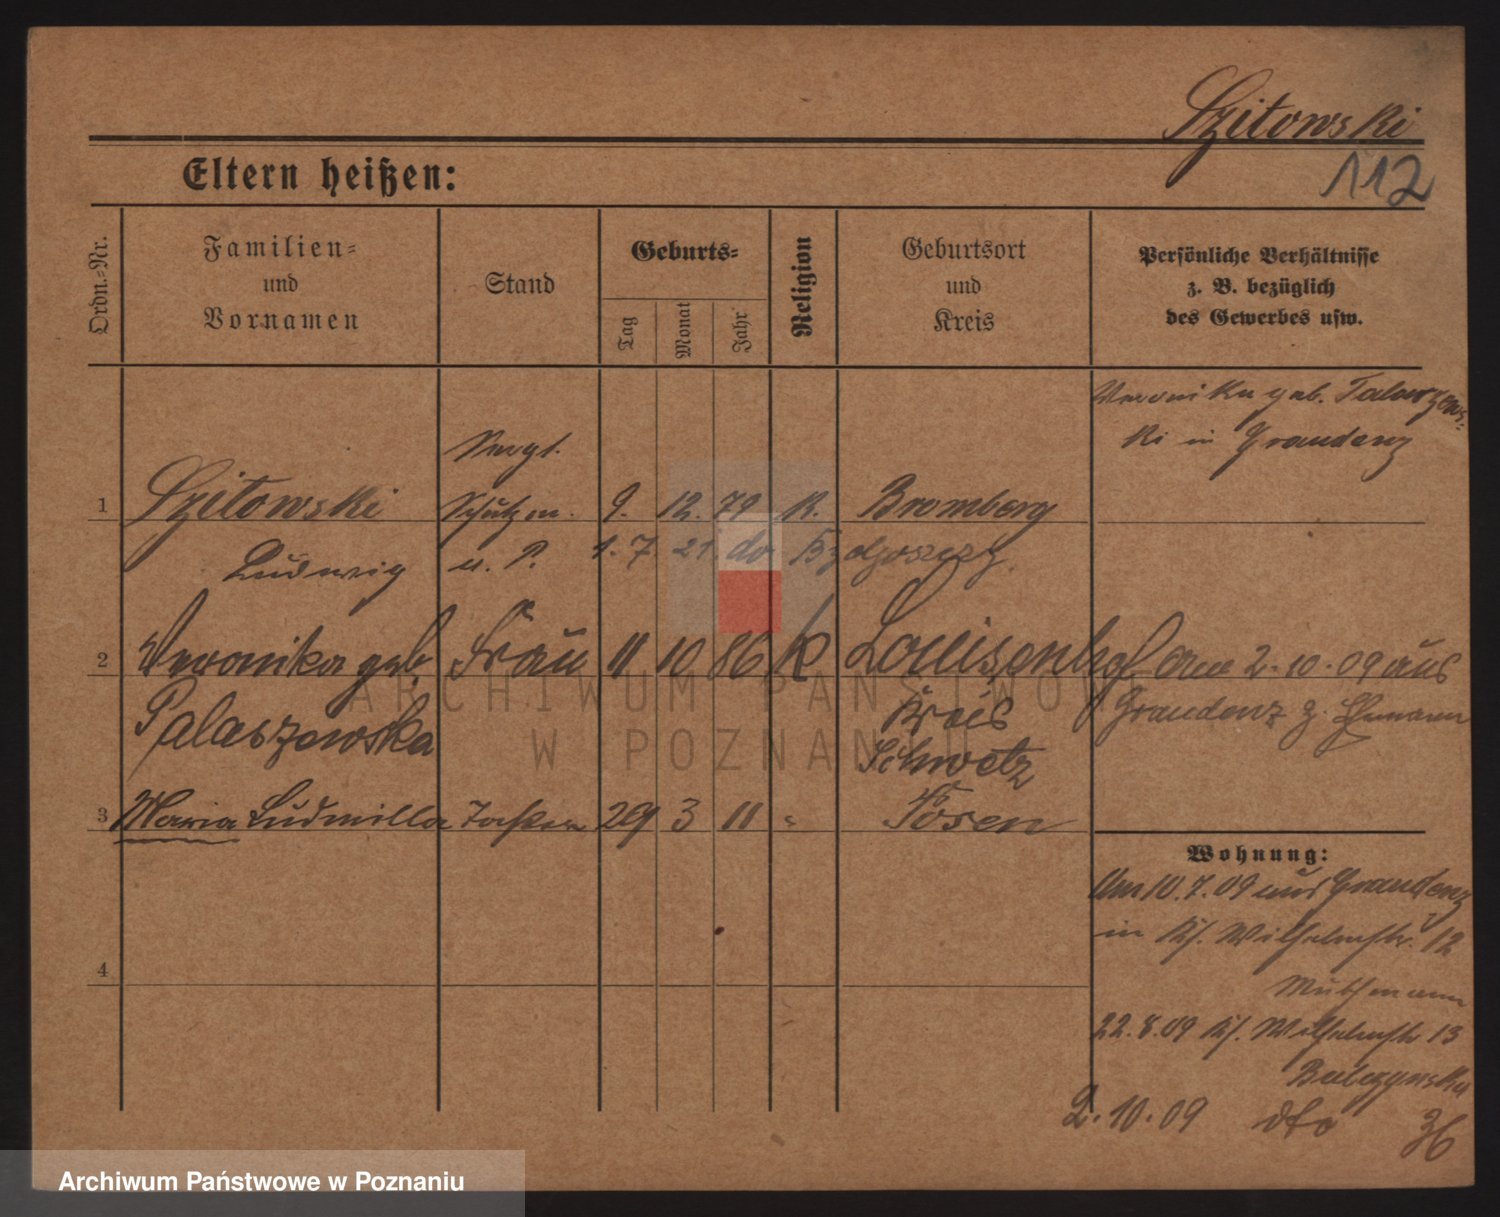 Szitowski
112
Eltern heißen:
Ordn.-Nr.
Familien-
und
Vornamen
Stand
Geburts-
Tag
Monat
Jahr
Religion
Geburtsort
und
Kreis
Persönliche Verhältnisse
z. B. bezüglich
des Gewerbes usw.
Veronika geb.
ki in Graudenz
1 Szitowski 9. 12. 79 K. Bromberg
Ludwig u. P. 1. 7 21. do Bydgoszczy
2 Veronika geb. Frau 11 10 86 K Louisenhof am 2.10.09 aus
Palaszewska Kreis Graudenz z.
Schwetz
3 Maria Ludmilla 29 3 11 " Posen
4
Wohnung:
Am 10.7.09 aus Graudenz
in Wilhelmstr. 12
Muthmann
22.8.09 Wilhelmstr 13
2.10.09 dto 36
ARCHIWUM PAŃSTWOWE
W POZNANIU
Archiwum Państwowe w Poznaniu